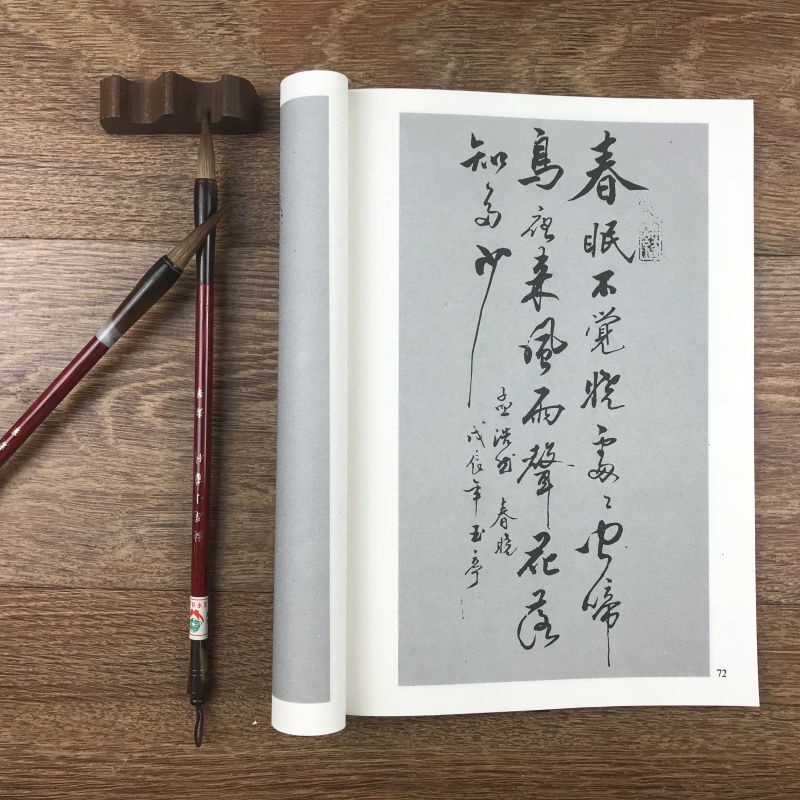 春眠不覚晓處々闻啼
鳥夜来風雨聲花落
知多少
孟浩然 春晓
戊辰年玉亭
72